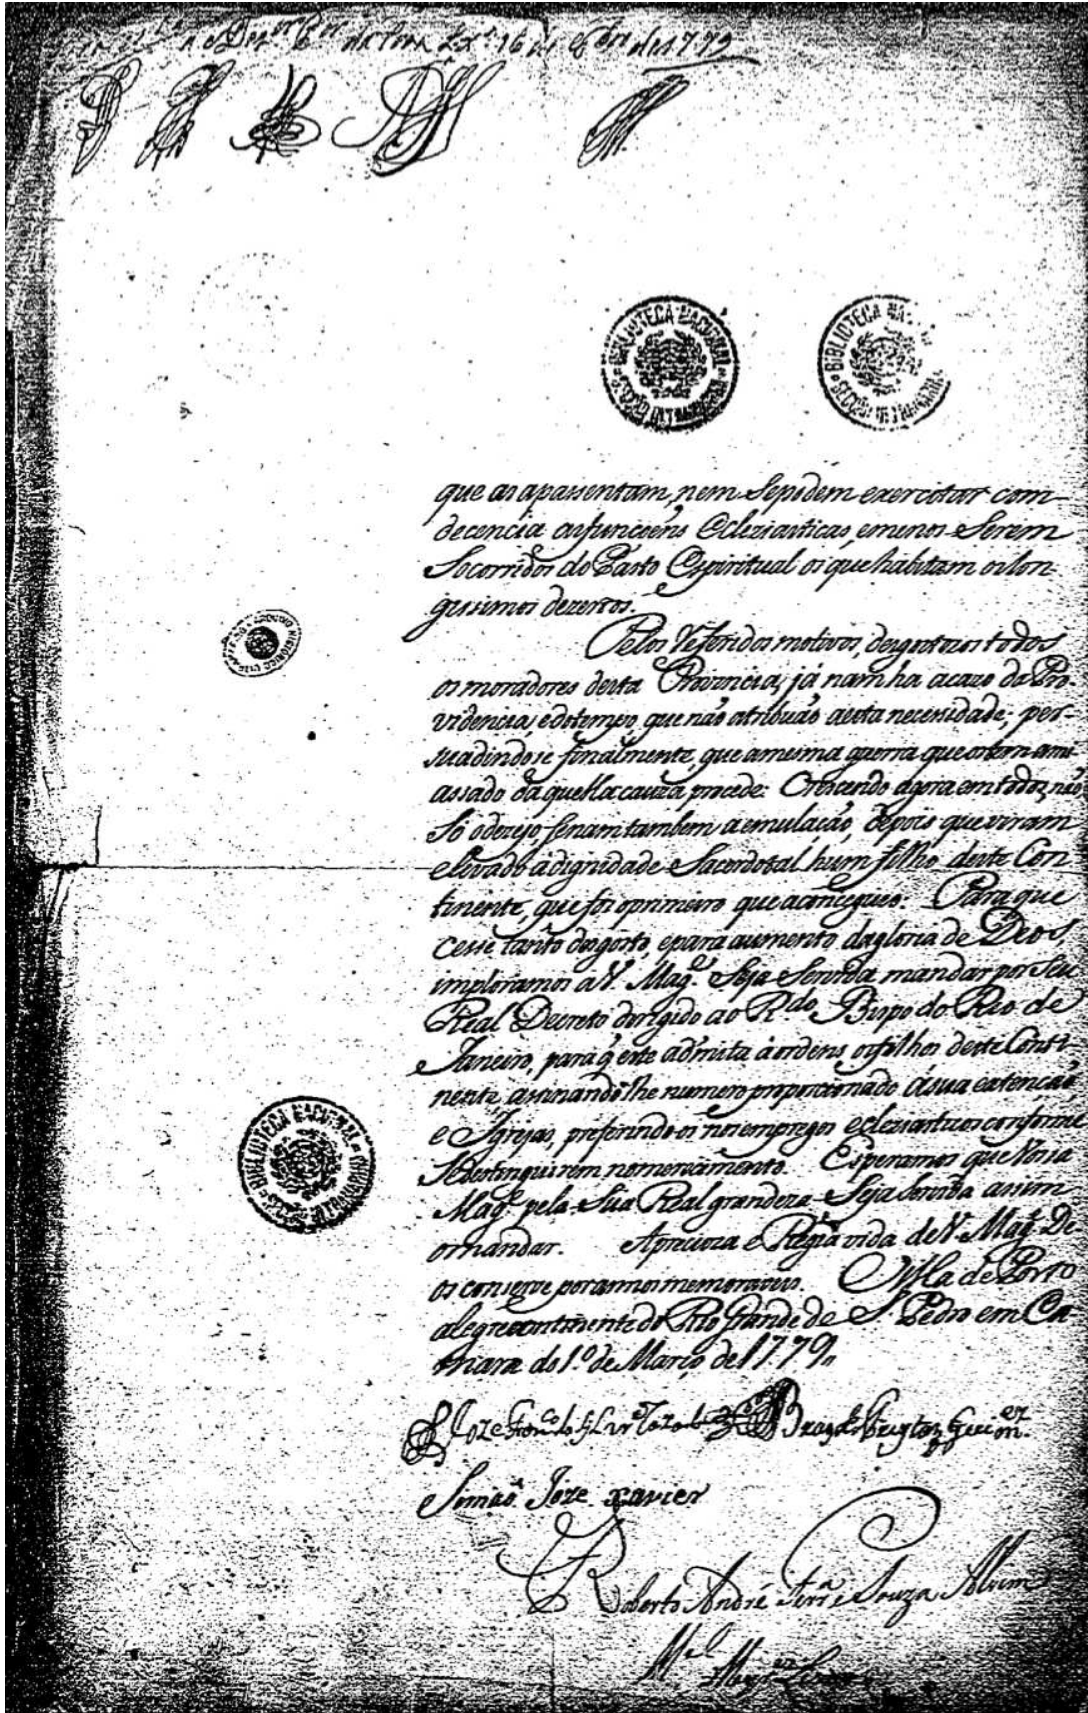 16 de 8bro de 1779
BIBLIOTECA NACIONAL
BIBLIOTECA
que as apassentam, nem Sepódem exercitar com
decencia asfuncoens Ecleziasticas, emenos Serem
Socorridos do Pasto Espiritual os que habitam oslon
gissimos dezertos.
Pelos Referidos motivos, desgostozos todos
os moradores desta Provincia, já nam ha acazo da Pro
videncia, edotempo, que não atribuão aesta necessidade; per-
suadindose finalmente, que amesma guerra que ostem ame
assado da quella cauza procede: Crescendo agora em todos, não
Só odezejo, senam tambem aemulação, depois que viram
elevado ádignidade Sacerdotal hum filho deste Con
tinente, que foi oprimeiro que aconceguio. Para que
cesse tanto desgosto, epara aumento dagloria de Deos,
imploramos a V. Magᵉ. Seja Servida mandar por Seu
Real Decreto dirigido ao R.do Bispo do Rio de
Janeiro, para q̃ este admita áordens osfilhos deste Conti-
nente, asinandolhe numero proporcionado ásua extenção
e Igrejas, preferindo os nos empregos ecleziasticos conforme
Sedestinguirem nomerecimento. Esperamos que Vossa
Magᵉ. pela Sua Real grandeza Seja Servida assim
omandar. Aprecioza e Regia vida de V. Magᵉ. De
os conserve por annos memoraveis. Villa de Porto
alegre continente do Rio Grande de S. Pedro em Ca
mara do 1.º de Março de 1779,,
Simão Joze xavier
Roberto André Ferrª Souza Alvim
BIBLIOTECA NACIONAL